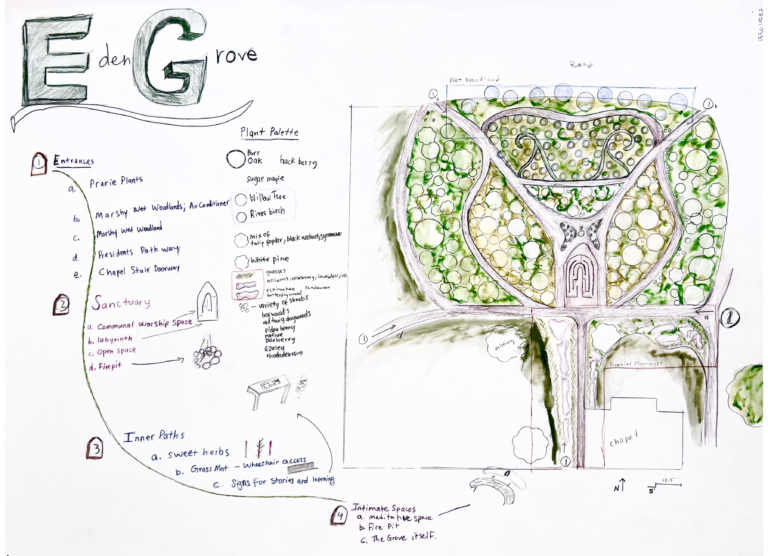 Eden Grove
1 Entrances
a. Prarie Plants
b. Marshy Wet Woodlands; Air Conditioner
c. Marshy Wet Woodland
d. Presidents Path way
e. Chapel Stair Doorway
2 Sanctuary
a. Communal Worship Space
b. labyrinth
c. Open space
d. Firepit
3 Inner Paths
a. sweet herbs
b. Grass Mat - Wheelchair access
c. Signs for Stories and learning
4 Intimate Spaces
a. meditative space
b. Fire Pit
c. The Grove itself.
Plant Palette
Burr Oak
hack berry
Sugar maple
Willow Tree
River birch
mix of
tulip poplar, black walnut, sycamore
White pine
grasses
variety of shrubs
boxwoods
red twig dogwoods
elder berry
barberry
azaley
rhododendrons
Road
Wet Woodland
existing
chapel
N
12.5'
5'